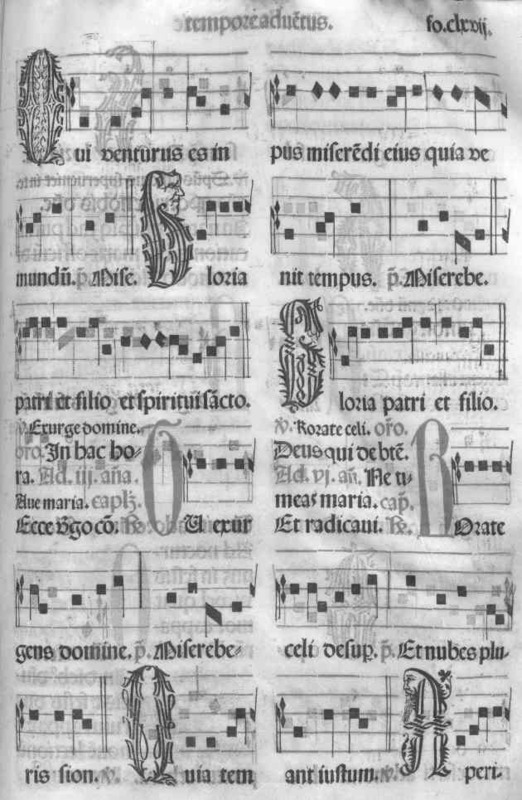 tempore aduẽtus.
fo.clxvij.
Qui venturus es in
mundũ. p̃. Mise. Gloria
patri et filio et spiritui sãcto.
℣. Exurge domine.
oro. In hac ho-
ra. Ad .iij. aña.
Aue maria. capł.
Ecce ꝟgo cõ. ℟. TU exur
gens domine. p̃. Miserebe-
ris sion. ℣. Quia tem
pus miserẽdi eius quia ve
nit tempus. p̃. Miserebe.
Gloria patri et filio.
℣. Rorate celi. oro.
Deus qui de btẽ.
Ad .vj. añ. Ne ti-
meas maria. cap.
Et radicaui. ℟. ROrate
celi desup. p̃. Et nubes plu-
ant iustum. ℣. Aperi-